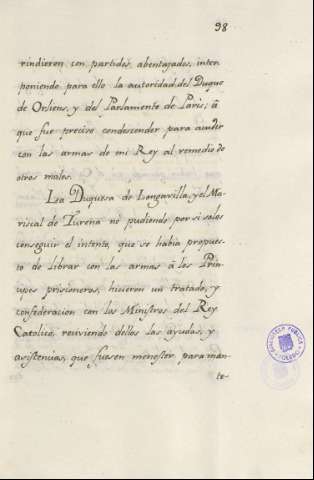 98
rindieron con partidos abentajados, inter
poniendo para ello la autoridad del Duque
de Orliens, y del Parlamento de Paris, á
que fue preciso condescender para acudir
con las armas de mi Rey al remedio de
otros males.
Lea Duquesa de Longavilla, y el Ma-
riscal de Turena nó pudiendo por si solos
conseguir el intento, que se habia propues-
to de librar con las armas á los Prin-
cipes prisioneros, hicieron un tratado, y
confederacion con los Ministros del Rey
Catolico, reciviendo dellos las ayudas, y
asistencias, que fuesen menester para man-
te-
BIBLIOTECA PUBLICA
TOLEDO